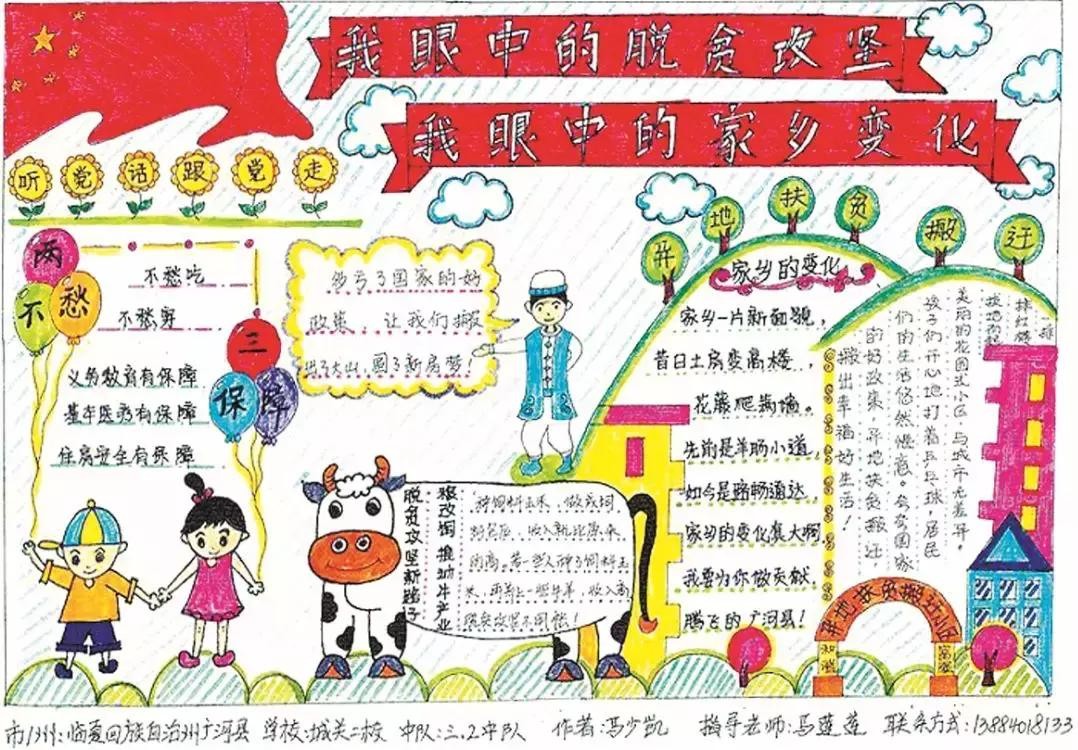 我眼中的脱贫攻坚
我眼中的家乡变化
听党话跟党走
两不愁
不愁吃
不愁穿
三保障
义务教育有保障
基本医疗有保障
住房安全有保障
多亏了国家的好
政策 让我们搬
出了大山 圆了新房梦
异地扶贫搬迁
家乡的变化
家乡一片新面貌,
昔日土房变高楼,
花藤爬满墙。
先前是羊肠小道,
如今是路畅通达,
家乡的变化真大啊
我要为你做贡献,
腾飞的广河县!
一排
排红楼
拔地而起
美丽的花园式小区,与城市无差异。
孩子们开心地打着乒乓球,居民
们的生活悠然惬意。
的好政策 异地扶贫搬迁
搬出幸福好生活!
粮改饲 推动牛产业
脱贫攻坚新路子
种饲料玉米,做成饲
收入就比原来
的高。
异地扶贫搬迁小区
和谐
富强
市/州:临夏回族自治州广河县 学校:城关二校 中队:三.2中队 作者:马少凯 指导老师:马莲莲 联系方式:13884018133